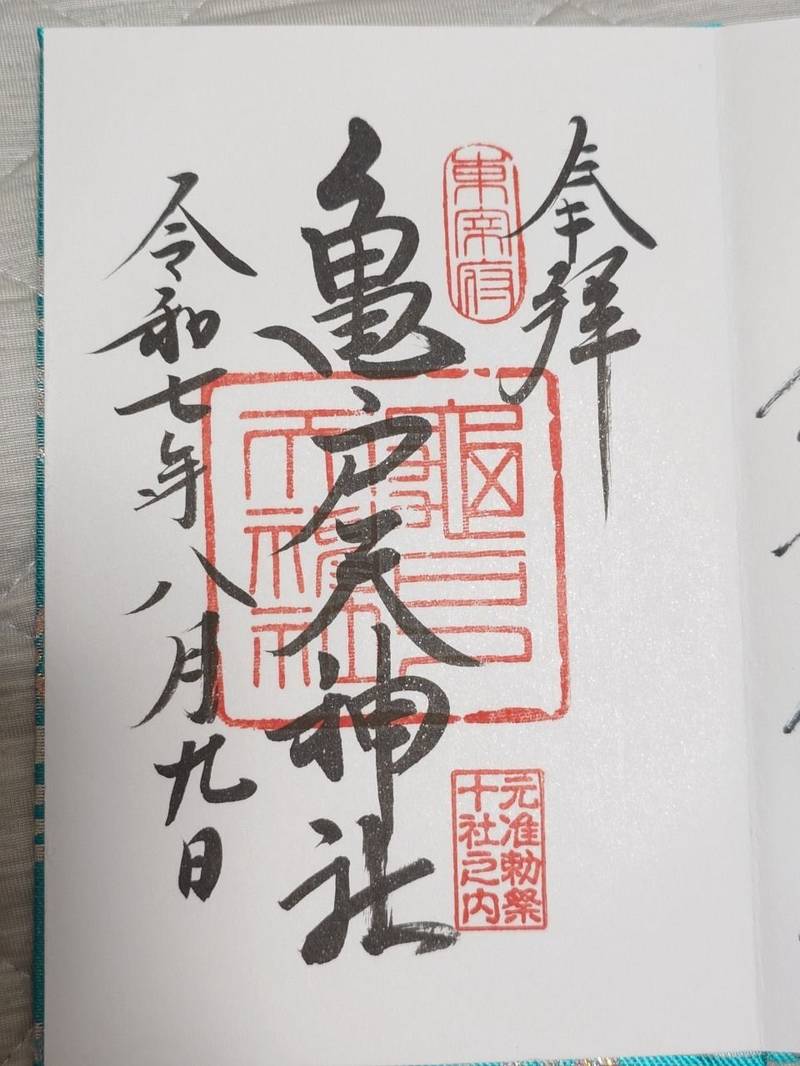 奉拝
東宰府
亀戸天神社
元准勅祭
十社之内
令和七年八月九日